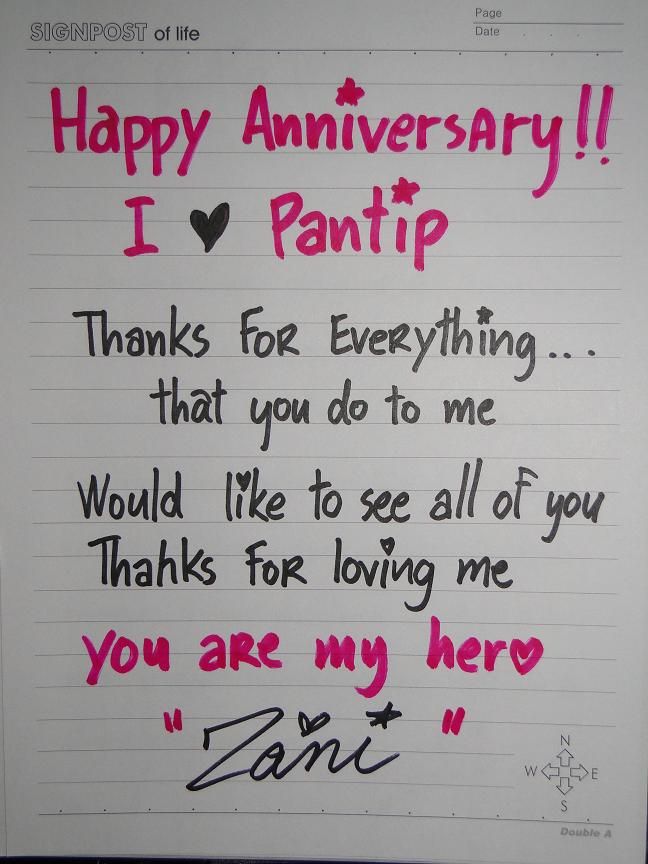 SIGNPOST of life
Page
Date
Happy Anniversary!!
I ♥ Pantip
Thanks For Everything...
that you do to me
Would like to see all of you
Thahks For loving me
you are my hero
"Zani"
N
W E
S
Double A